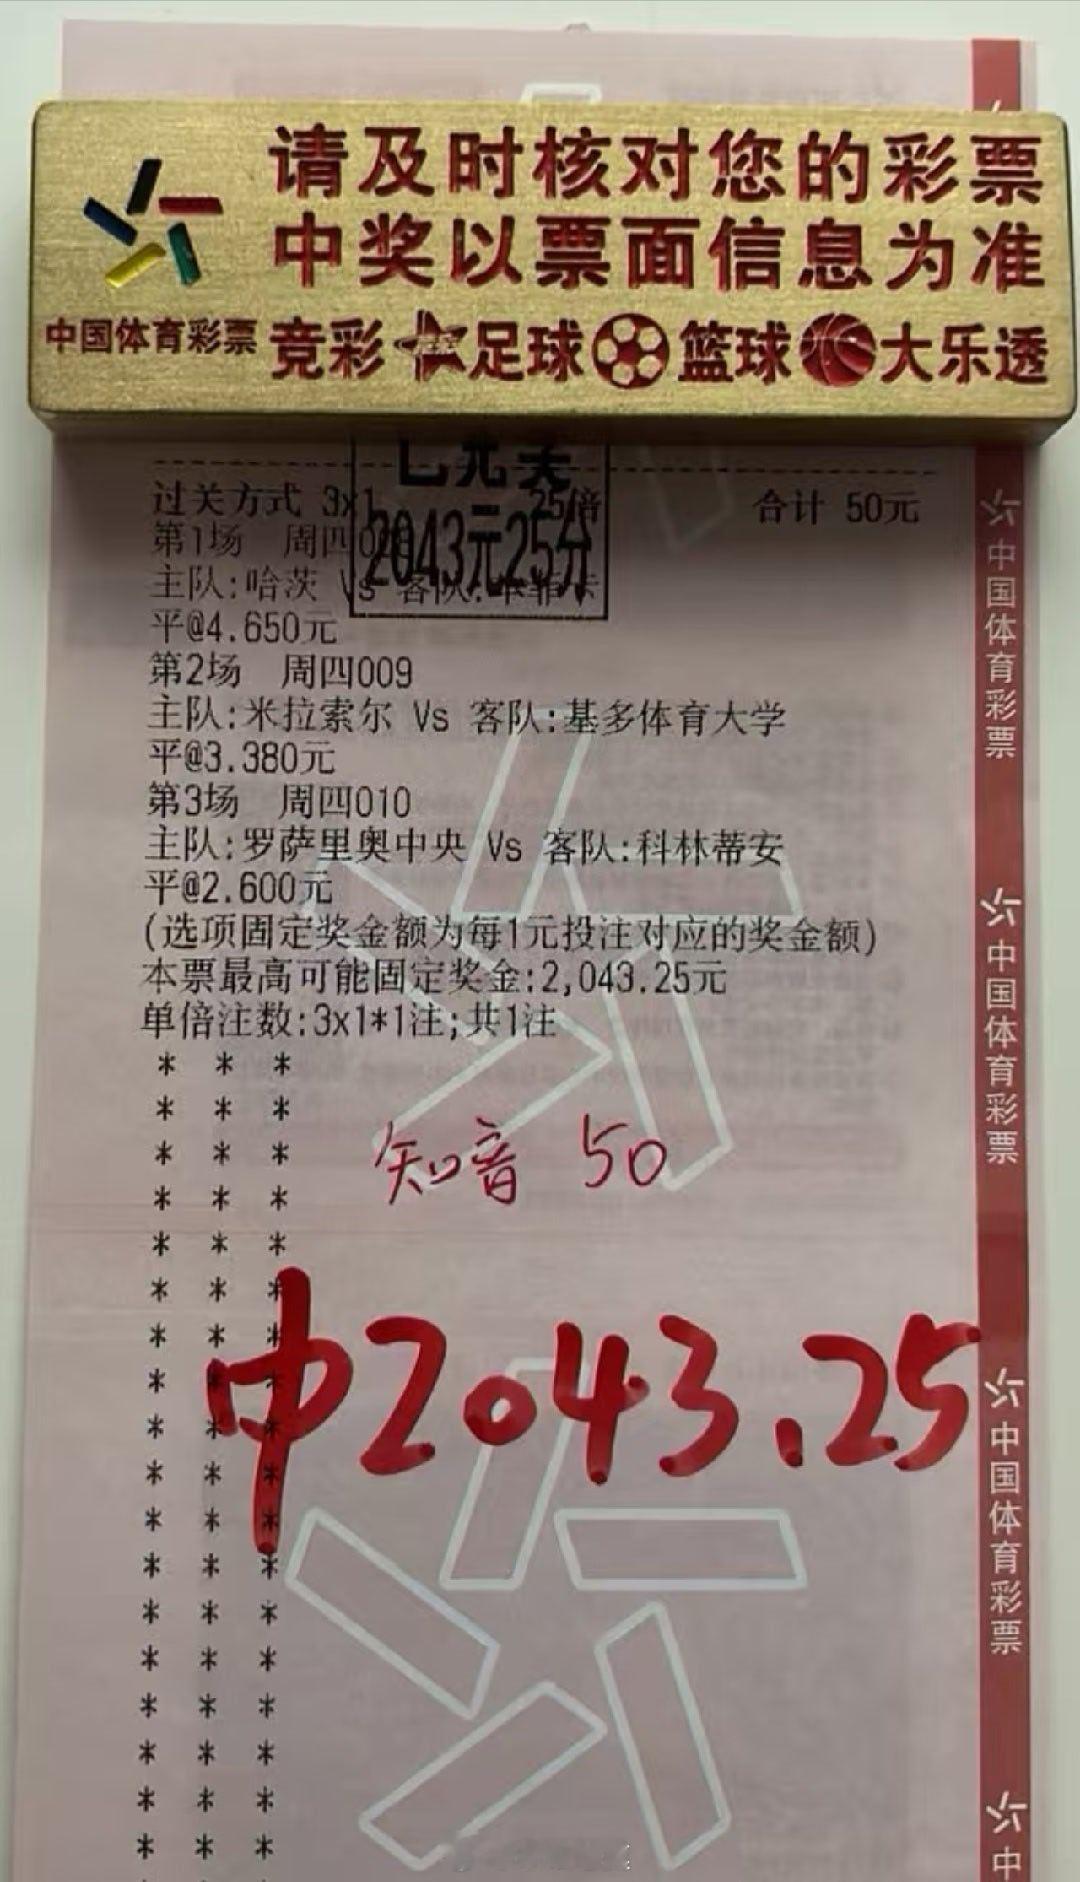 请及时核对您的彩票
中奖以票面信息为准
中国体育彩票 竞彩 足球 篮球 大乐透
已兑奖
2043元25分
过关方式 3x1 25倍 合计 50元
第1场 周四
主队:哈茨 Vs 客队:本菲卡
平@4.650元
第2场 周四009
主队:米拉索尔 Vs 客队:基多体育大学
平@3.380元
第3场 周四010
主队:罗萨里奥中央 Vs 客队:科林蒂安
平@2.600元
(选项固定奖金额为每1元投注对应的奖金额)
本票最高可能固定奖金:2,043.25元
单倍注数:3x1*1注;共1注
* * *
* * *
* * *
* * *
* * *
* * *
* * *
* * *
* * *
* * *
* * *
* * *
* * *
* * *
* * *
* * *
* * *
* * *
知音 50
中2043.25
中国体育彩票
中国体育彩票
中国体育彩票
中